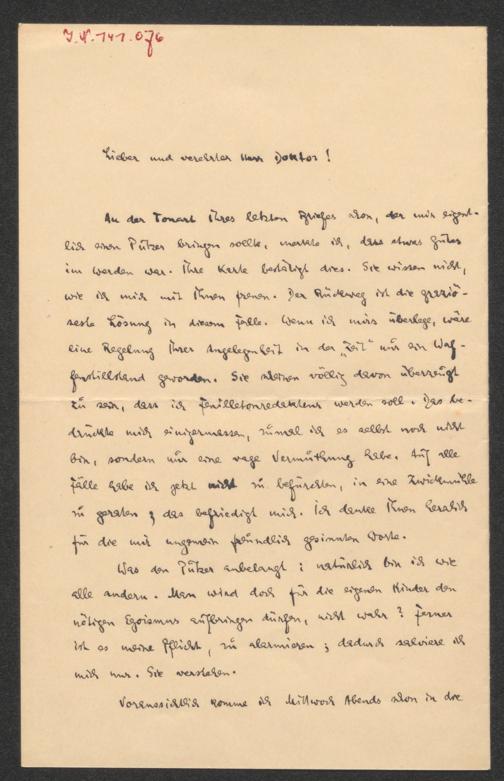 J.N. 141.076
Lieber und verehrter Herr Doktor!
An der Tonart Ihres letzten Briefes schon, der mir eigent-
lich einen Putzer bringen sollte, merkte ich, dass etwas Gutes
im Werden war. Ihre Karte bestätigt dies. Sie wissen nicht,
wie ich mich mit Ihnen freue. Der Rückweg ist die graziö-
seste Lösung in diesem Falle. Wenn ich mirs überlege, wäre
eine Regelung Ihrer Angelegenheit in der „Zeit" nur ein Waf-
fenstillstand geworden. Sie scheinen völlig davon überzeugt
zu sein, dass ich Feuilletonredakteur werden soll. Das be-
drückte mich einigermassen, zumal ich es selbst noch nicht
bin, sondern nur eine vage Vermuthung habe. Auf alle
Fälle habe ich jetzt nicht zu befürchten, in eine Zwickmühle
zu geraten; das befriedigt mich. Ich danke Ihnen herzlich
für die mir ungemein freundlich gesinnten Worte.
Was den Putzer anbelangt: natürlich bin ich wie
alle andern. Man wird doch für die eigenen Kinder den
nötigen Egoismus aufbringen dürfen, nicht wahr? Ferner
ist es meine Pflicht, zu alarmieren; dadurch salviere ich
mich nur. Sie verstehen.
Voraussichtlich komme ich Mittwoch Abends schon in die